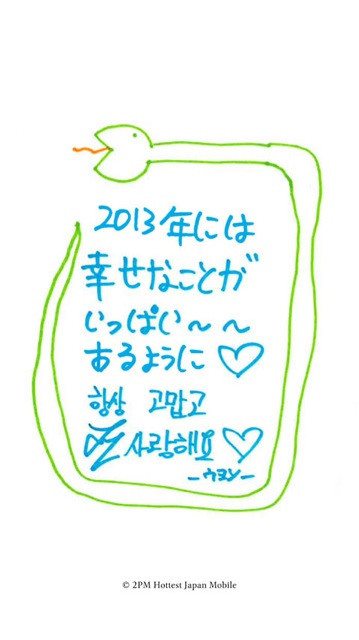 2013年には
幸せなことが
いっぱい〜〜
あるように♡
항상 고맙고
사랑해요♡
−ウヨン−
© 2PM Hottest Japan Mobile